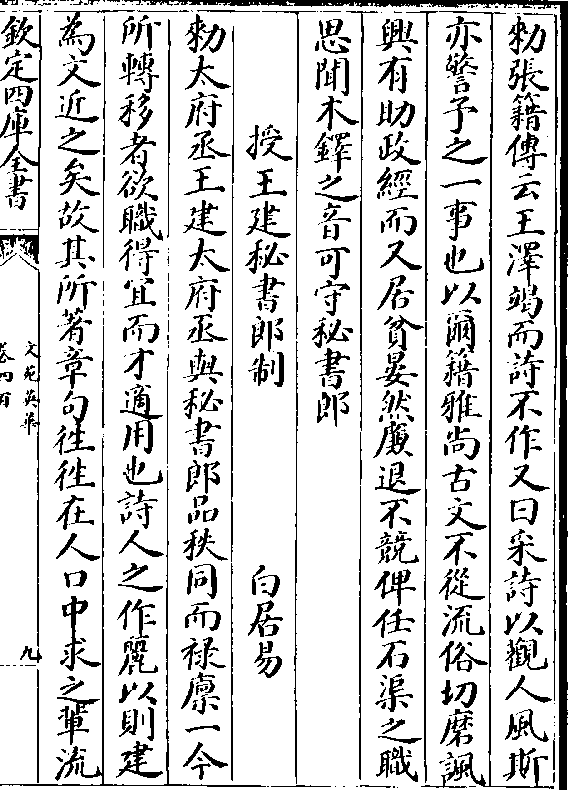 勑張籍傳云王澤竭而詩不作又曰采詩以觀人風斯
亦警予之一事也以爾籍雅尚古文不從流俗切磨諷
興有助政經而又居貧晏然廉退不競俾任石渠之職
思聞木鐸之音可守秘書郎
授王建秘書郎制 白居易
勑太府丞王建太府丞與秘書郎品秩同而祿廪一今
所轉移者欲職得宜而才適用也詩人之作麗以則建
為文近之矣故其所著章句徃徃在人口中求之輩流
欽定四庫全書
文苑英華
卷四百
九